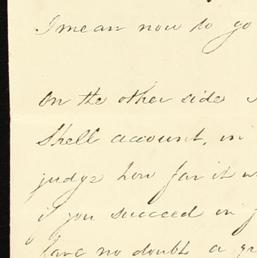 I mean now to go
On the other side
Shell account, in
judge how far it w
if you succeed in f
have no doubt a gr